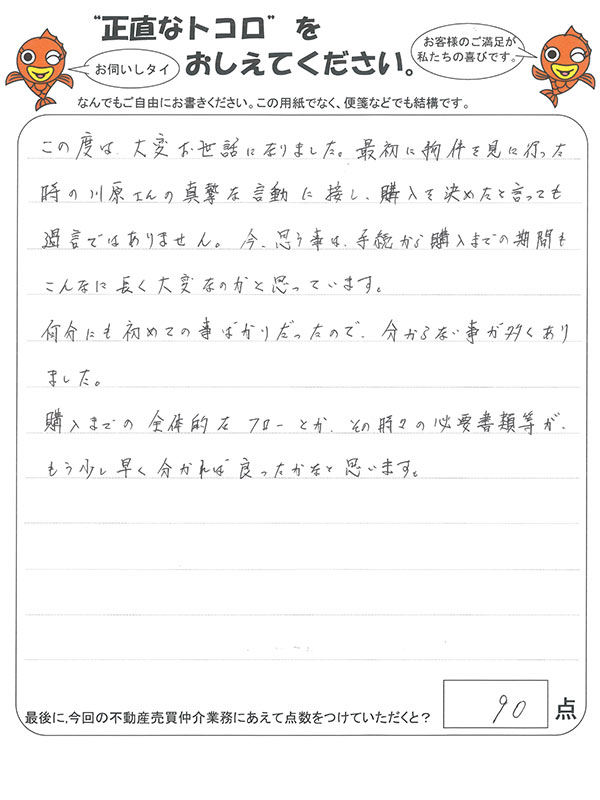 "正直なトコロ"を
おしえてください。
お伺いしタイ
お客様のご満足が
私たちの喜びです。
なんでもご自由にお書きください。この用紙でなく、便箋などでも結構です。
この度は、大変お世話になりました。最初に物件を見に行った
時の川原さんの真摯な言動に接し、購入を決めたと言っても
過言ではありません。今、思う事は、手続から購入までの期間も
こんなに長く大変なのかと思っています。
何分にも初めての事ばかりだったので、分からない事が多くあり
ました。
購入までの全体的なフローとか、その時々の必要書類等が、
もう少し早く分かれば良ったかなと思います。
最後に、今回の不動産売買仲介業務にあえて点数をつけていただくと？ 90 点